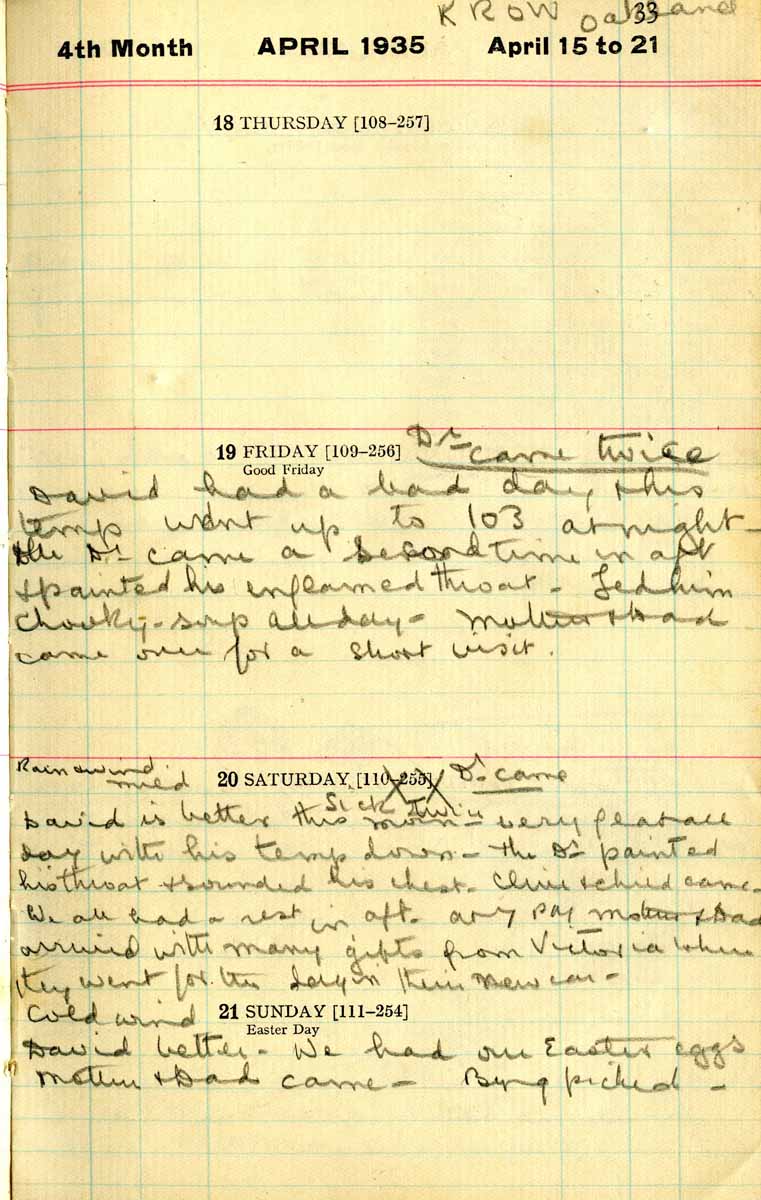 KROW Oakland
33
4th Month APRIL 1935 April 15 to 21
18 THURSDAY [108–257]
19 FRIDAY [109–256] Dr came twice
Good Friday
David had a bad day & his
temp went up to 103 at night –
the Dr came a second time in aft
& painted his enflamed throat – Fed him
soup all day – Mother & Dad
came over for a short visit.
Rain & wind
mild
20 SATURDAY [110–255] Dr came
Sick
David is better this morn – very
day with his temp down – the Dr painted
his throat & sounded his chest. Clive & child came –
We all had a rest in aft. at 7 Mother & Dad
arrived with many gifts from Victoria where
they went for the day in their new car –
Cold wind
21 SUNDAY [111–254]
Easter Day
David better – We had our Easter eggs
Mother & Dad came – picked –